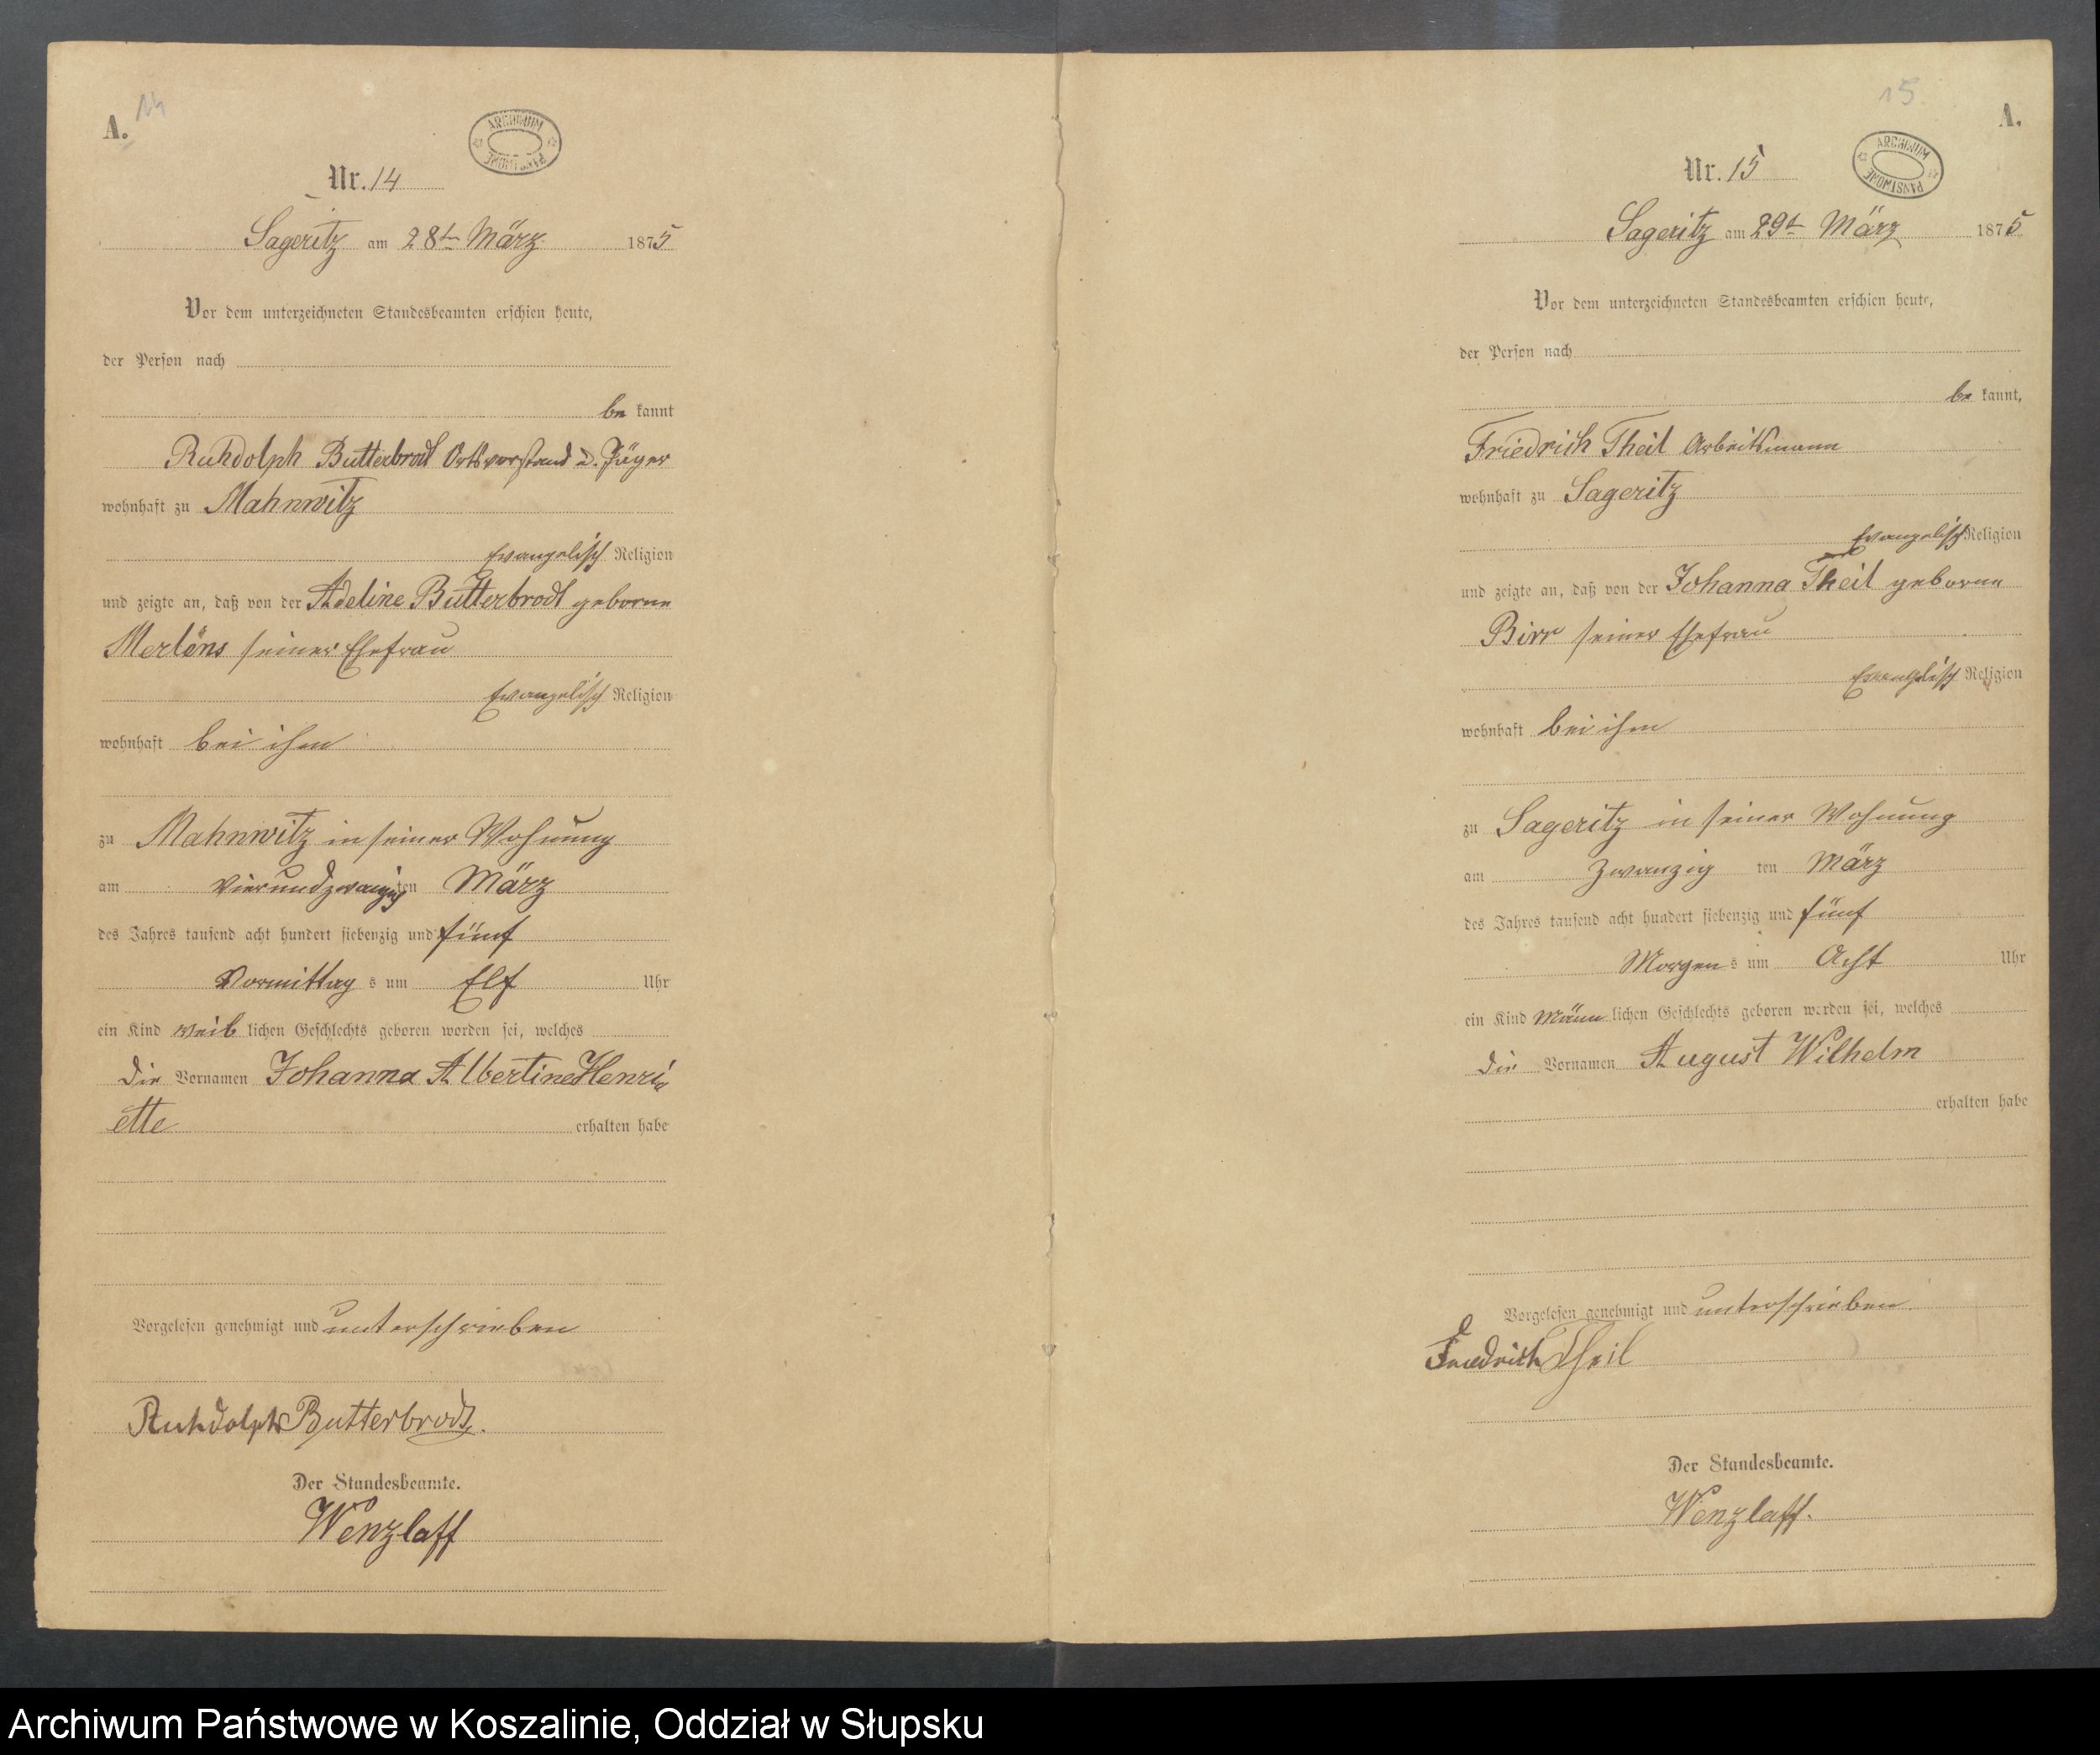 A. 14
ARCHIWUM PAŃSTWOWE
Nr. 14
Sageritz am 28t März 1875
Vor dem unterzeichneten Standesbeamten erschien heute,
der Person nach
be kannt
Ruhdolph Butterbrodt Ortsvorstand u. Jäger
wohnhaft zu Mahnwitz
Evangelisch Religion
und zeigte an, daß von der Adeline Butterbrodt geborne
Mertens seiner Ehefrau
Evangelisch Religion
wohnhaft bei ihm
zu Mahnwitz in seiner Wohnung
am Vierundzwanzig ten März
des Jahres tausend acht hundert siebenzig und fünf
Vormittag s um Elf Uhr
ein Kind weib lichen Geschlechts geboren worden sei, welches
die Vornamen Johanna Albertine Henri
ette erhalten habe
Vorgelesen genehmigt und unterschrieben
Ruhdolph Butterbrodt.
Der Standesbeamte.
Wenzlaff
15 A.
ARCHIWUM PAŃSTWOWE
Nr. 15
Sageritz am 29t März 1875
Vor dem unterzeichneten Standesbeamten erschien heute,
der Person nach
be kannt,
Friedrich Theil Arbeitsmann
wohnhaft zu Sageritz
Evangelisch Religion
und zeigte an, daß von der Johanna Theil geborne
Birr seiner Ehefrau
Evangelisch Religion
wohnhaft bei ihm
zu Sageritz in seiner Wohnung
am Zwanzig ten März
des Jahres tausend acht hundert siebenzig und fünf
Morgen s um Acht Uhr
ein Kind Männ lichen Geschlechts geboren worden sei, welches
die Vornamen August Wilhelm
erhalten habe
Vorgelesen genehmigt und unterschrieben.
Friedrich Theil
Der Standesbeamte.
Wenzlaff.
Archiwum Państwowe w Koszalinie, Oddział w Słupsku